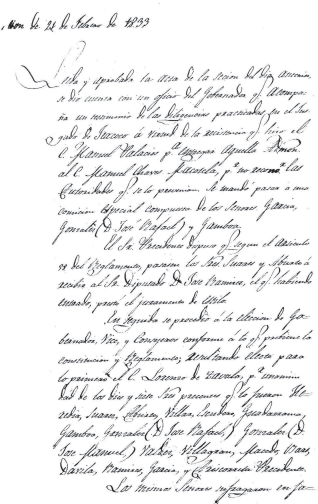 de 24 de Febrero de 1833
Leida y aprobada la acta de la secion del dia anterior,
se dio cuenta con un oficio del Gobernador q. acompa-
ña un testimonio de las diligencias practicadas en el Juz-
gado de á virtud de la resistencia q. hizo el
C. Manuel Palacios pª entregar aquella
al C. Manuel Chavez pr. no las
autoridades q. se lo previenen. Se mandó pasar á una
comision especial compuesta de los Señores Garcia,
Gonzalez (D. José Rafael) y Gamboa.
El Sr. Presidente dispuso q. segun el articulo
del Reglamento, pasaran los Sres. Suares y á
recibir al Sr. Diputado D. José Ramirez, el q. habiendo
entrado, prestó el juramento de estilo.
En seguida se procedió á la eleccion de Go-
bernador, Vice, y Consejeros conforme á lo q. previene la
constitucion y Reglamento; resultando electo para
lo primero el C. Lorenzo de Zavala, pr. unanimi-
dad de los diez y siete Sres. presentes q. lo fueron He-
redia, Suares, Villar, Escudero, Guadarrama,
Gamboa, Gonzalez (D. José Rafael,) Gonzalez (D.
José Manuel) Valdes, Villagran, Macedo, Baz,
Davila, Ramirez, Garcia, y Presidente.
Los mismos Señores sufragaron en fa-